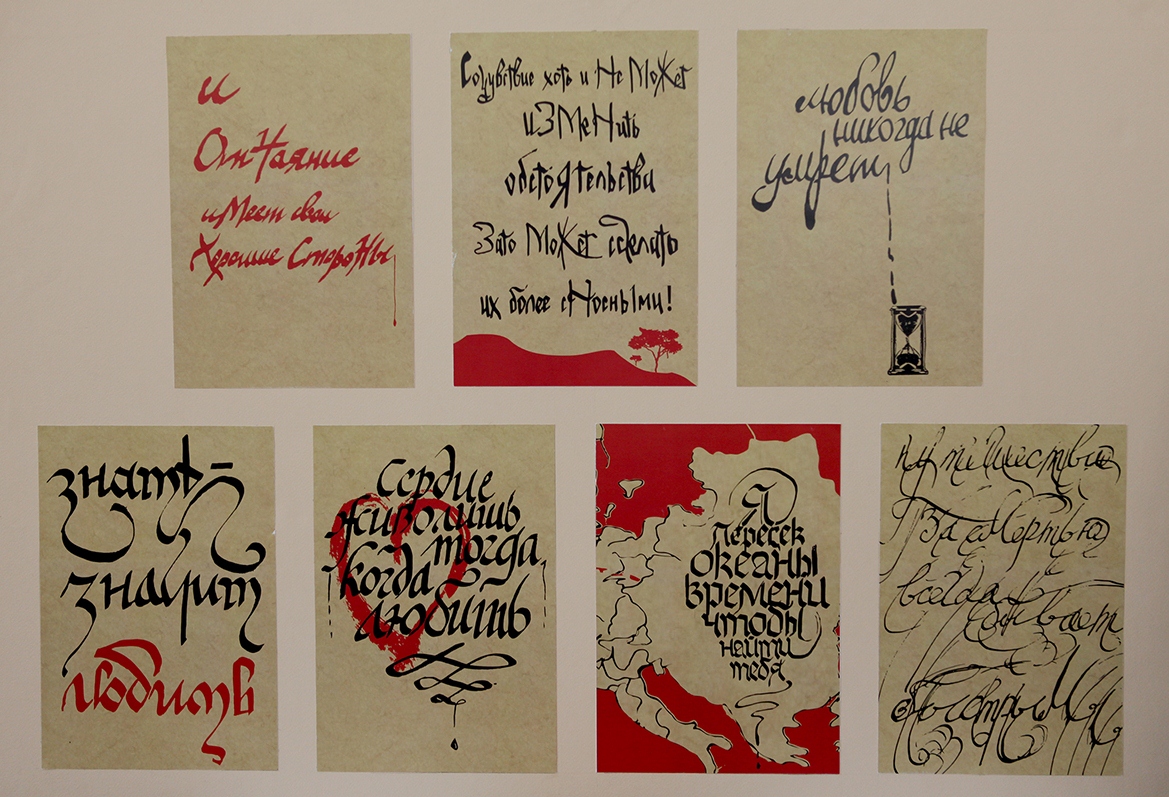 и
Отчаяние
имеет свои
Хорошие Стороны
Сочувствие хоть и Не Может
изменить
обстоятельства
Зато Может сделать
их более сНосными!
любовь
никогда не
умрет
знать-
значит
любить
Сердце
живо лишь
тогда,
когда
любить
Я
Пересек
океаны
времени
чтобы
найти
тебя
путешествие
За смертью
всегда
бывает
быстрым